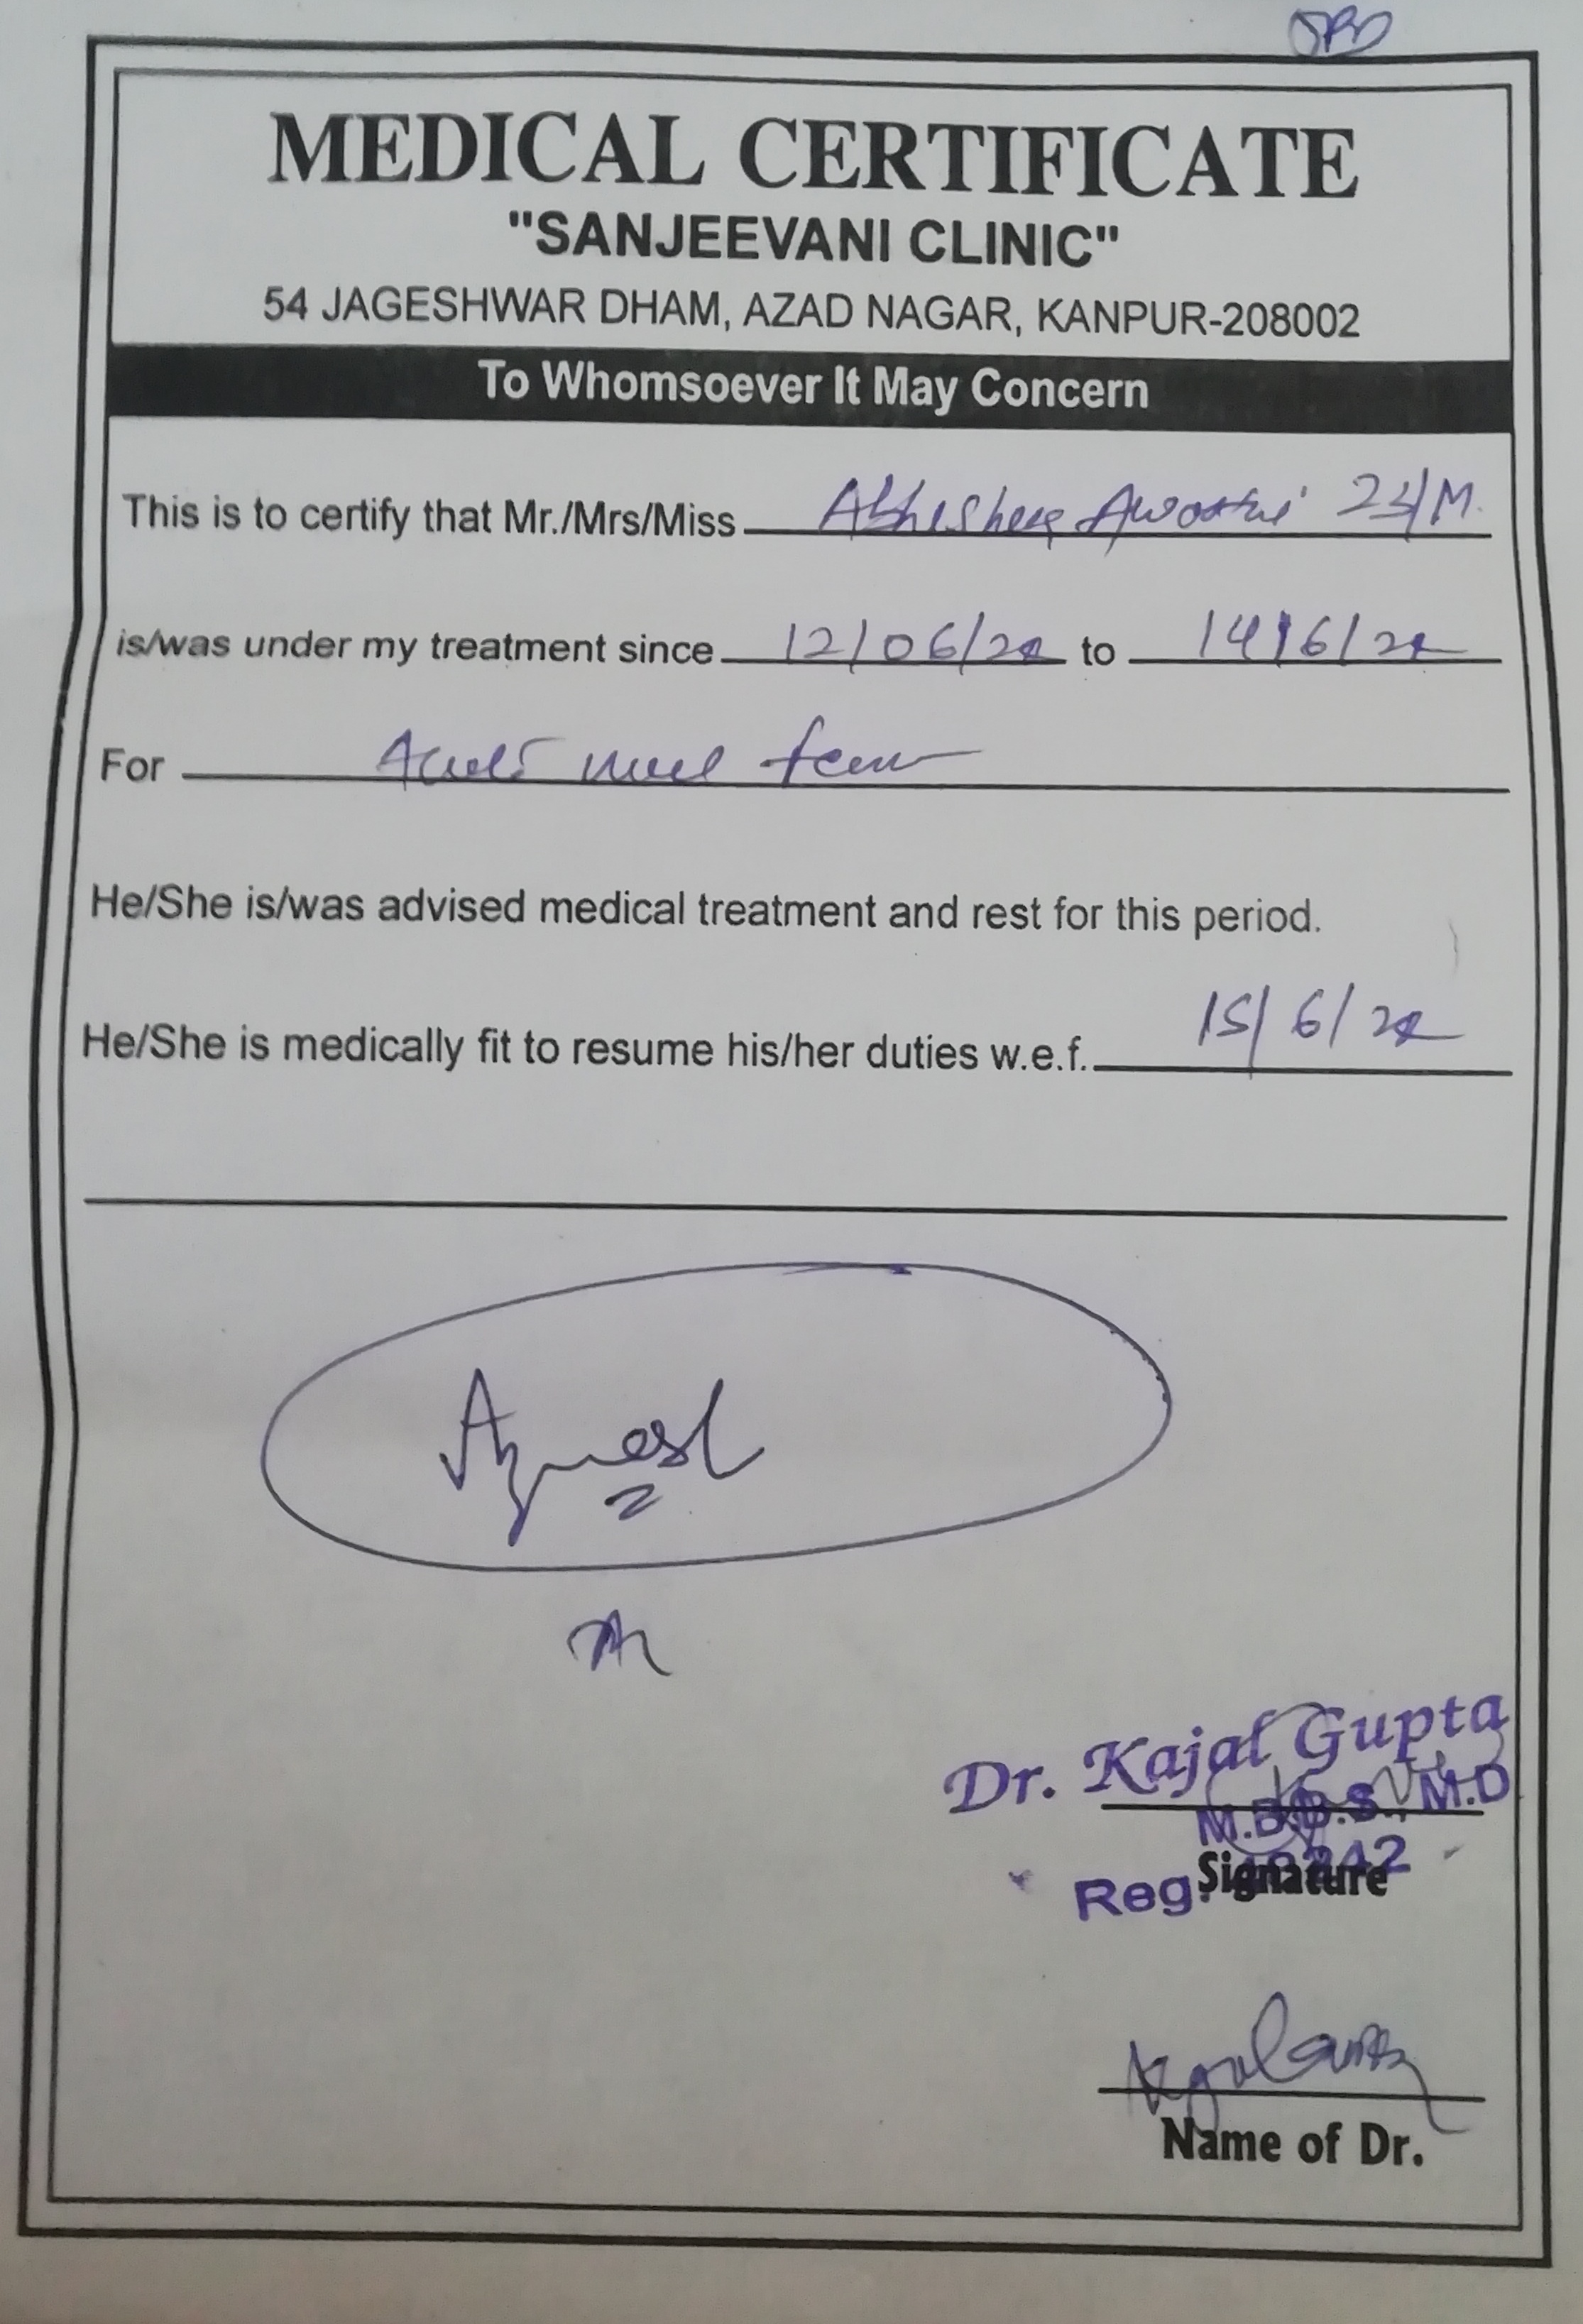 MEDICAL CERTIFICATE
"SANJEEVANI CLINIC"
54 JAGESHWAR DHAM, AZAD NAGAR, KANPUR-208002
To Whomsoever It May Concern
This is to certify that Mr./Mrs/Miss
is/was under my treatment since 12/06/22 to 14/6/22
For
He/She is/was advised medical treatment and rest for this period.
He/She is medically fit to resume his/her duties w.e.f. 15/6/22
Dr. Kajal Gupta
M.B.B.S. M.D
Signature
Reg.
Name of Dr.